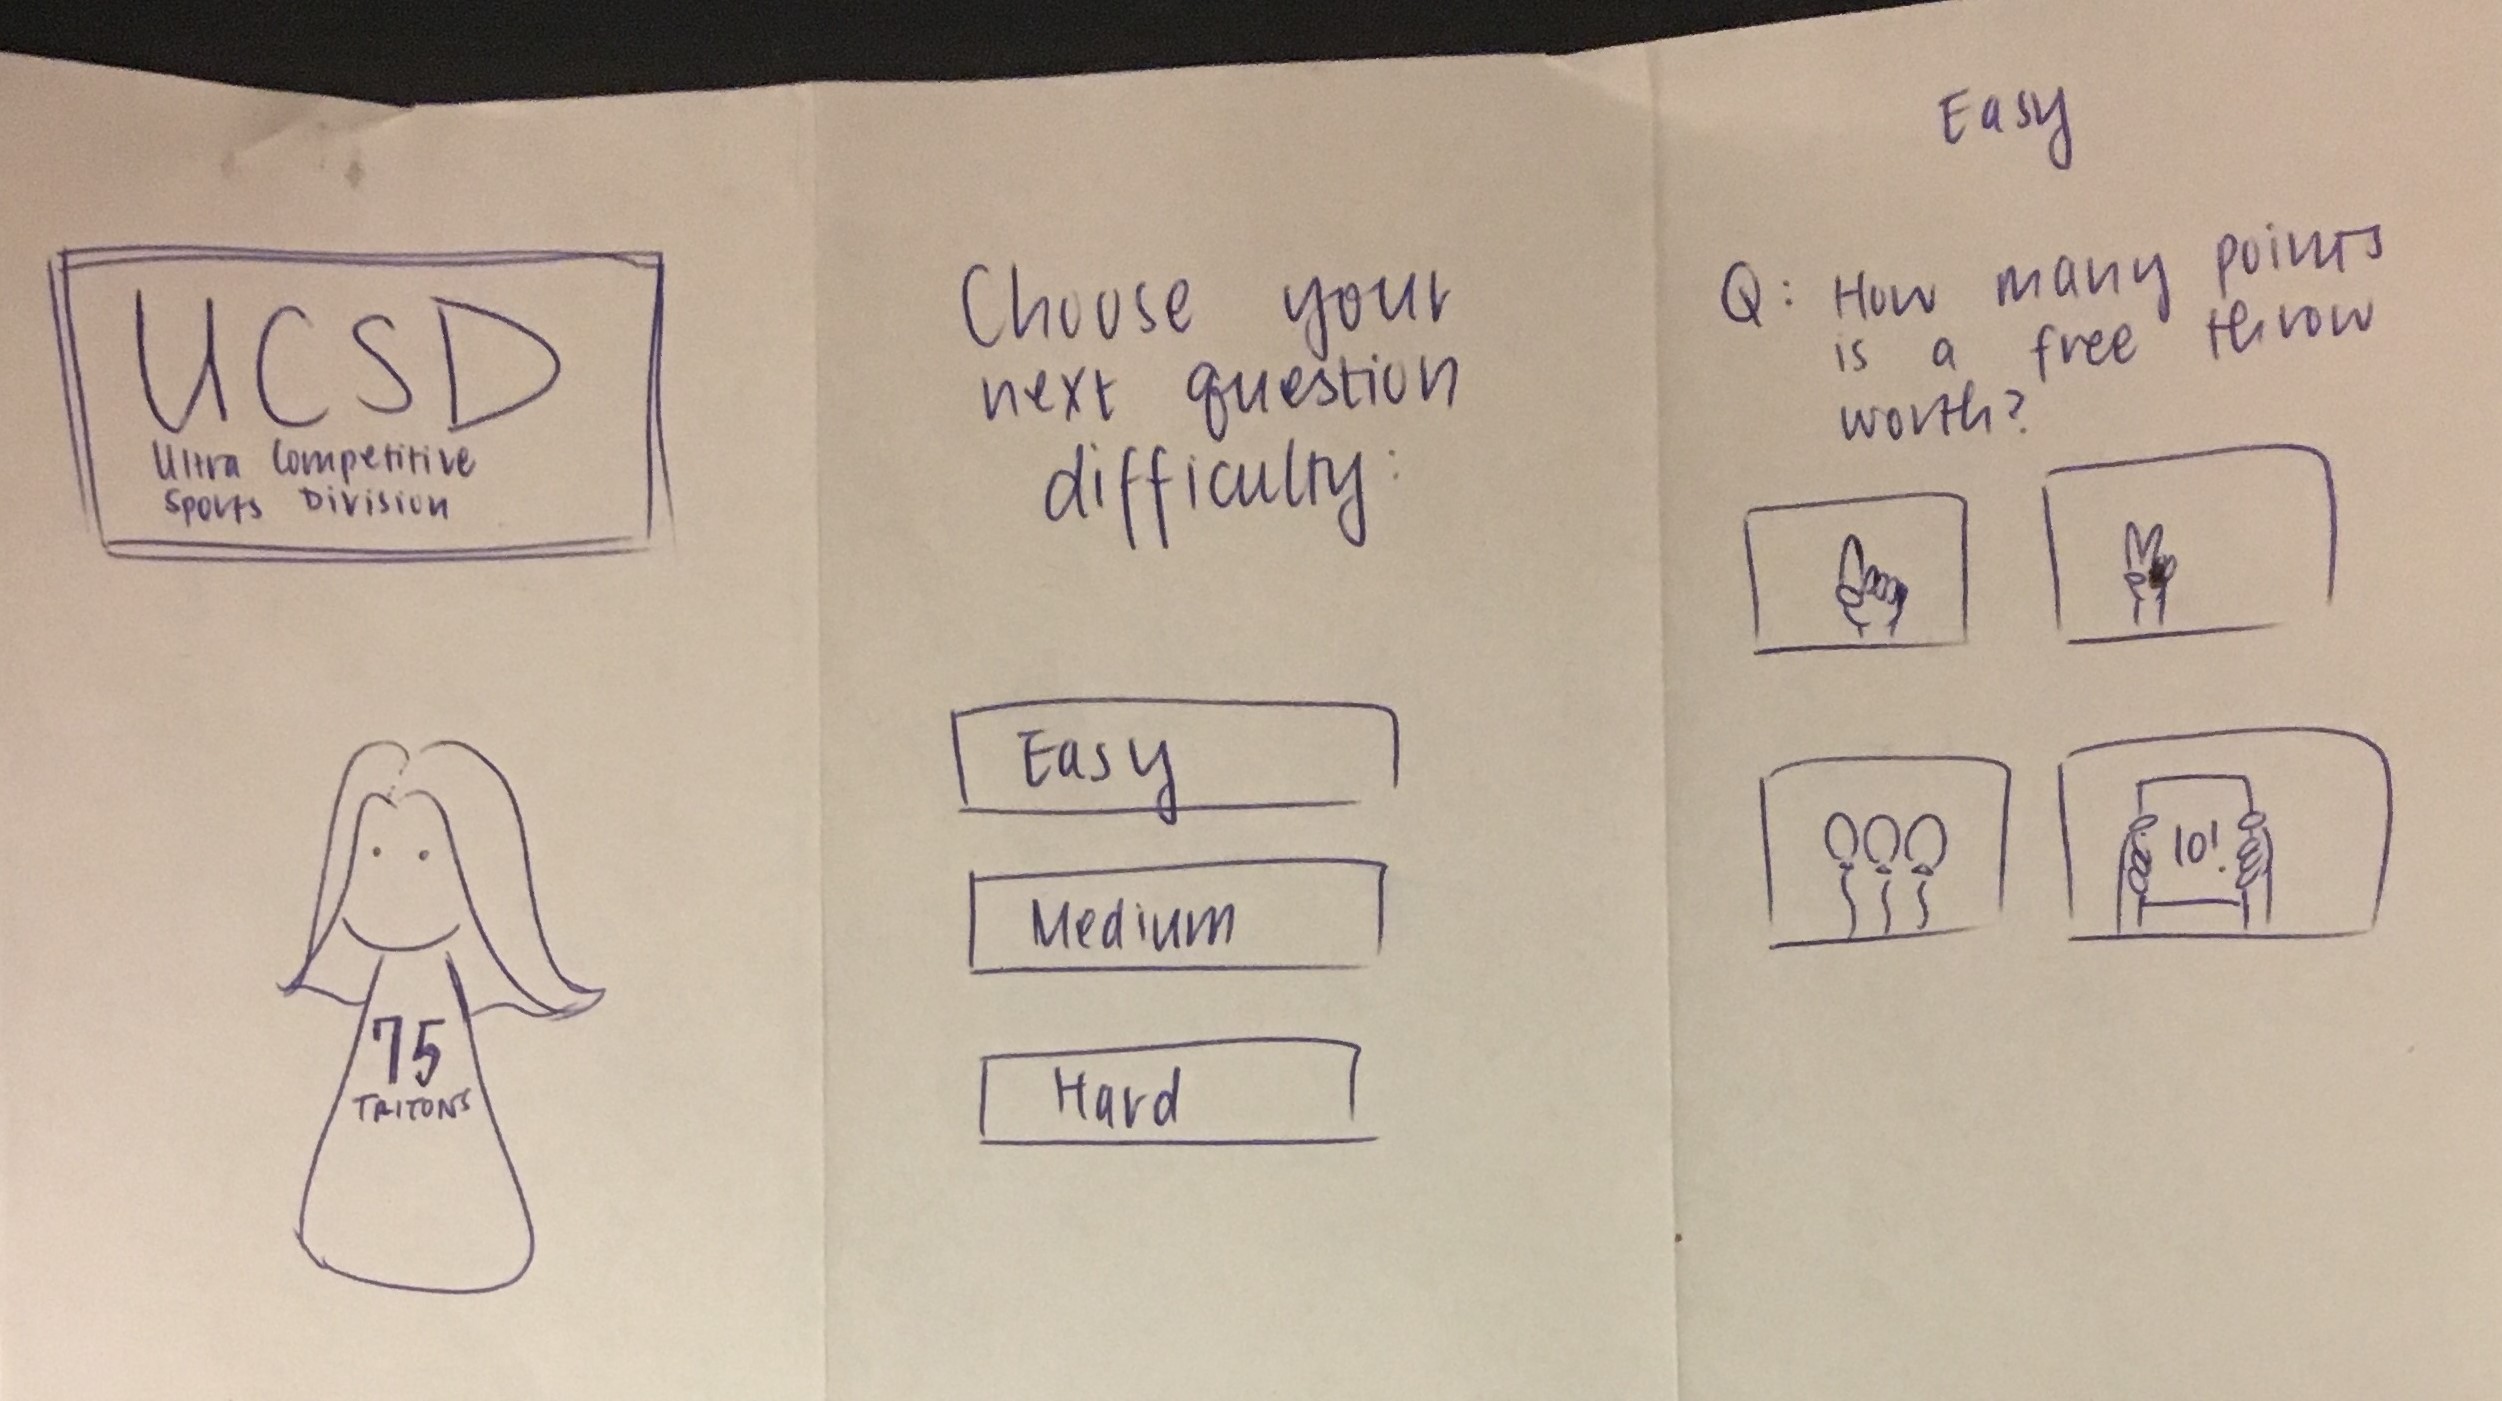 UCSD
Ultra Competitive
Sports Division
75
TRITONS
Choose your
next question
difficulty:
Easy
Medium
Hard
Easy
Q: How many points
is a free throw
worth?
10!